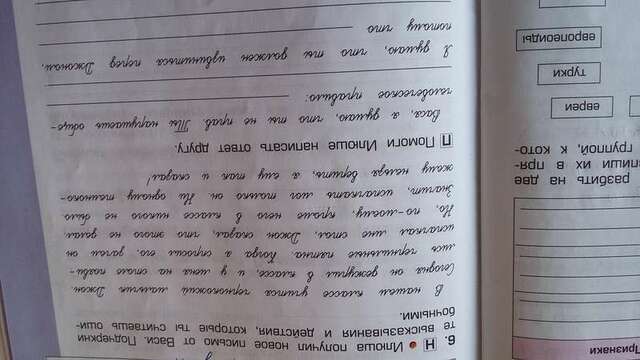 Признаки
разбить на две
впиши их в пря-
группой, к кото-
евреи
турки
европеоиды
6. Н • Илюша получил новое письмо от Васи. Подчеркни
те высказывания и действия, которые ты считаешь оши-
бочными.
В нашем классе учится чернокожий мальчик Джон.
Сегодня он дежурил в классе, и у меня на столе появи-
лись чернильные пятна. Когда я спросил его, зачем он
испачкал мне стол, Джон сказал, что этого не делал.
Но, по-моему, кроме него в классе никого не было.
Значит, испачкать мог только он. Ни одному темноко-
жему нельзя верить, я ему так и сказал!
П Помоги Илюше написать ответ другу.
Вася, я думаю, что ты не прав. Ты нарушаешь обще-
человеческое правило:
Я думаю, что ты должен извиниться перед Джоном,
потому что